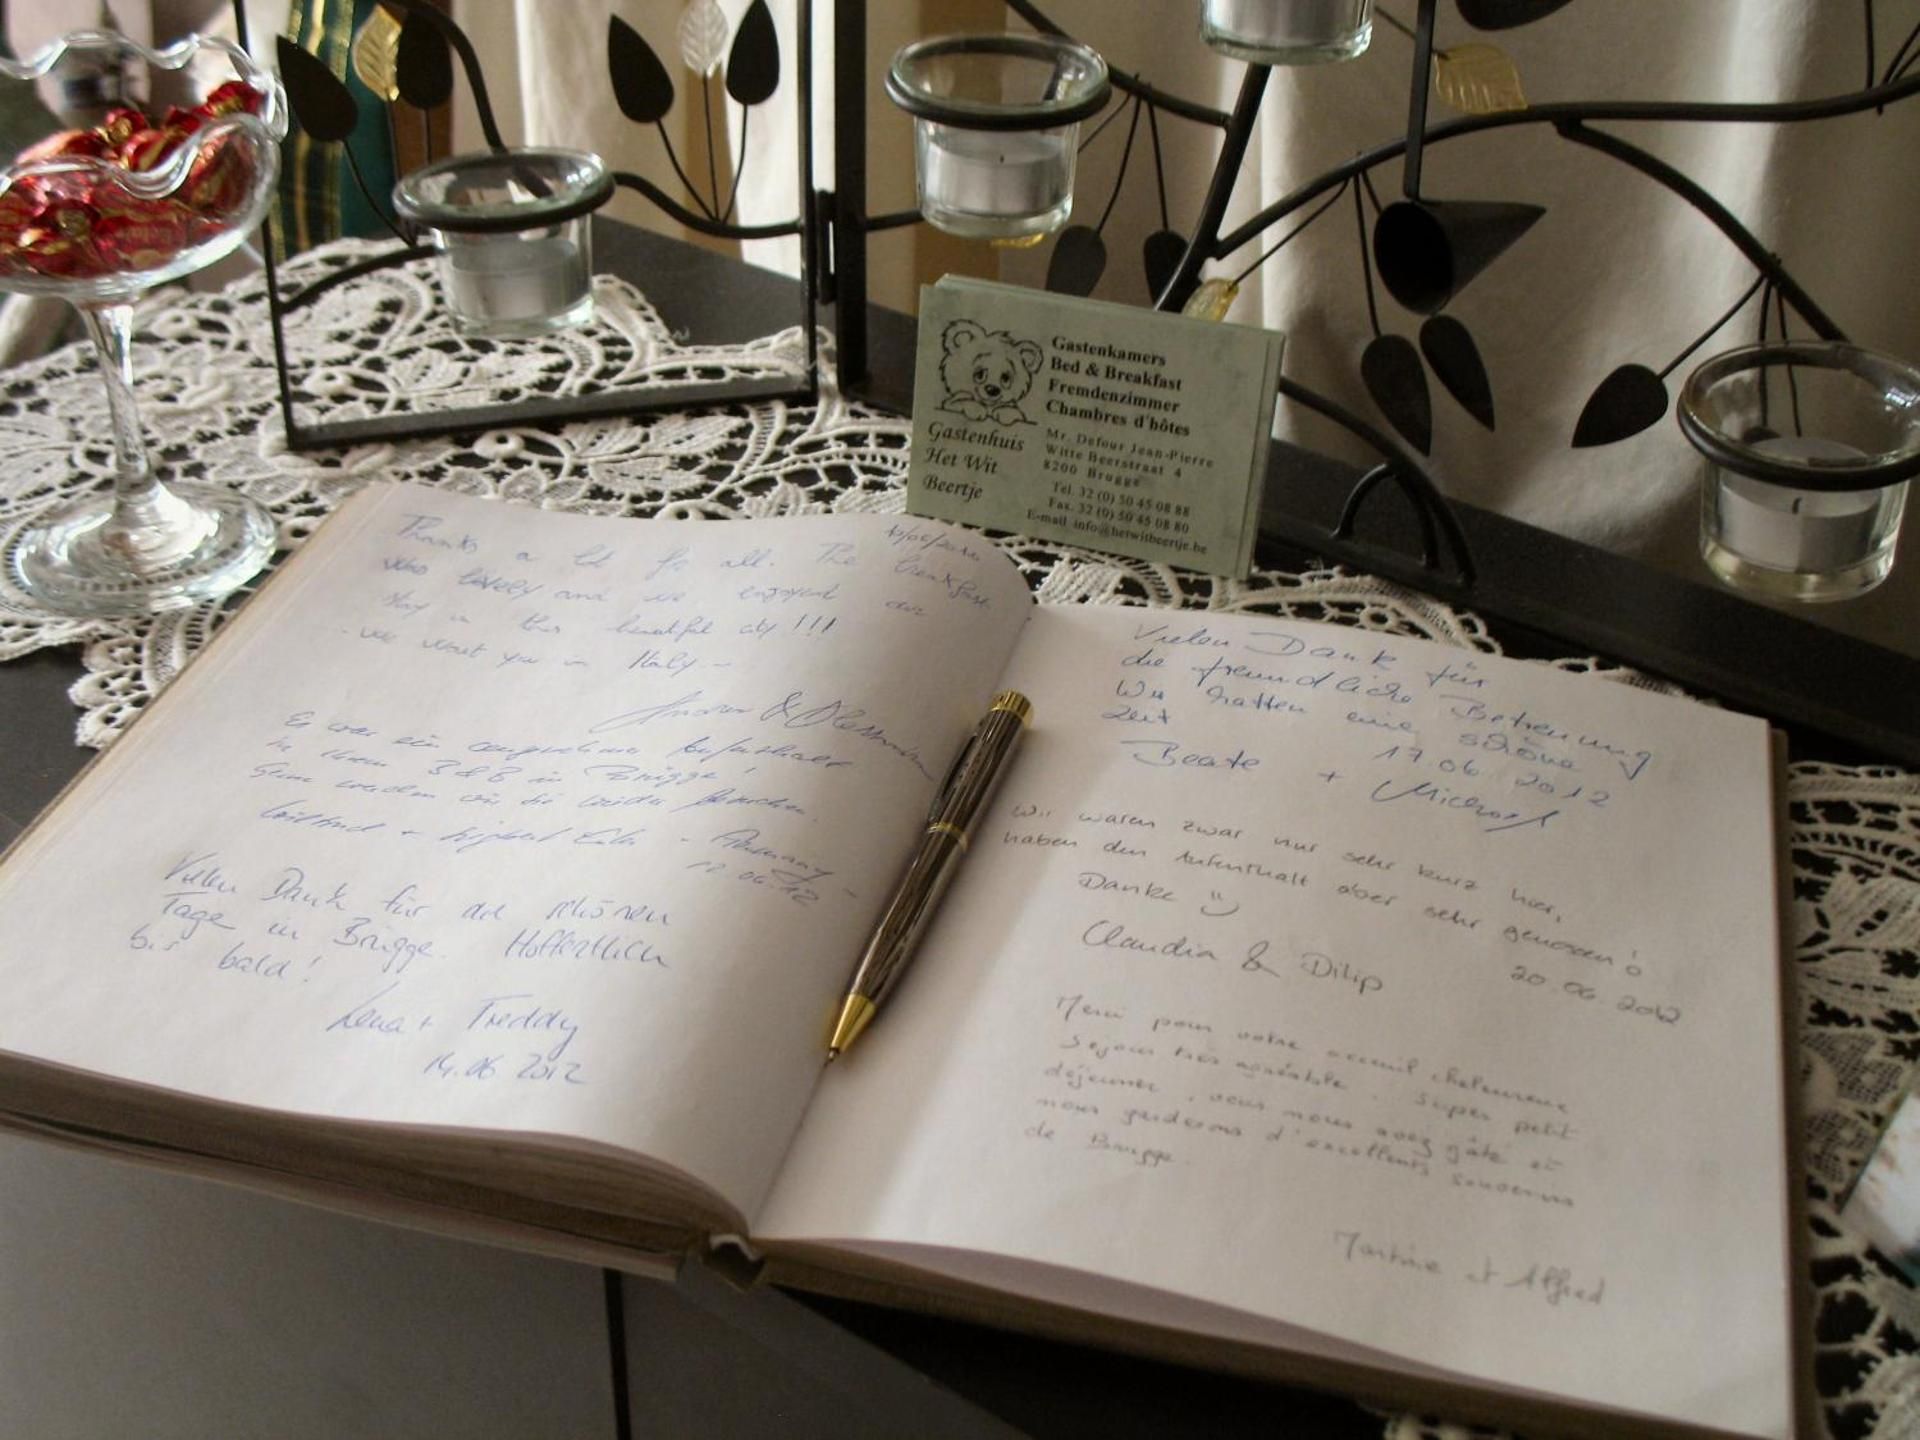 Gastenkamers
Bed & Breakfast
Fremdenzimmer
Chambres d'hôtes
Gastenhuis
Het Wit
Beertje
Mr. Defour Jean-Pierre
Witte Beerstraat 4
8200 Brugge
Tel. 32 (0) 50 45 08 88
Fax. 32 (0) 50 45 08 80
E-mail info@hetwitbeertje.be
Thanks a lot for all. The breakfast
was lovely and we enjoyed our
stay in this beautiful city!!!
we wait you in Italy
Es war ein angenehmer Aufenthalt
in Ihrem B&B in Brügge!
Gern werden wir Sie wieder besuchen.
12.06.12
Vielen Dank für die schönen
Tage in Brügge. Hoffentlich
bis bald!
Lena + Freddy
14.06 2012
Vielen Dank für
die freundliche Betreuung
Wir hatten eine schöne
Zeit 17.06.2012
Beate + Michael
Wir waren zwar nur sehr kurz hier,
haben den Aufenthalt aber sehr genossen!
Danke
Claudia & Dilip
20.06.2012
Merci pour votre accueil chaleureux
Sejour très agréable. Super petit
déjeuner, vous nous avez gâté et
nous garderons d'excellents souvenirs
de Brugge.
Martine et Alfred